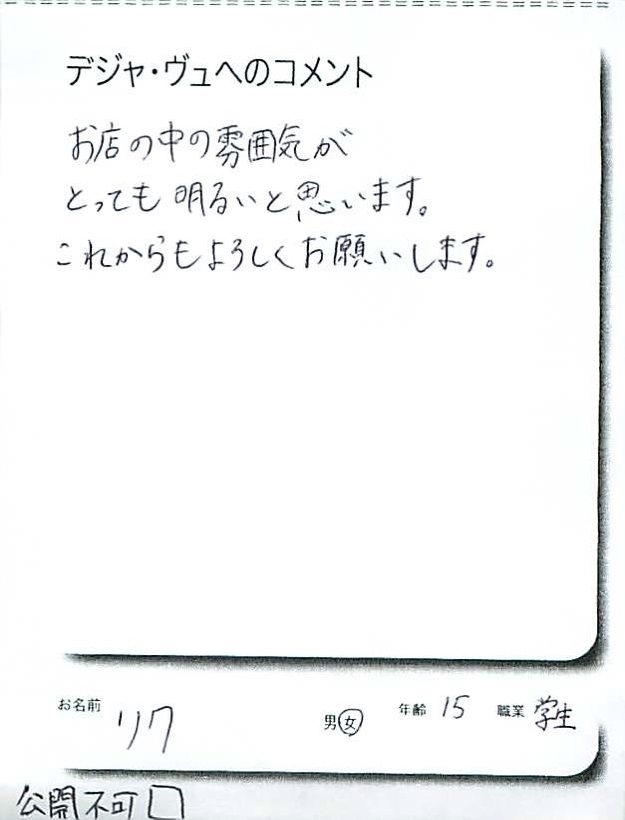 デジャ・ヴュへのコメント
お店の中の雰囲気が
とっても明るいと思います。
これからもよろしくお願いします。
お名前 リク 男 女 年齢 15 職業 学生
公開不可 □